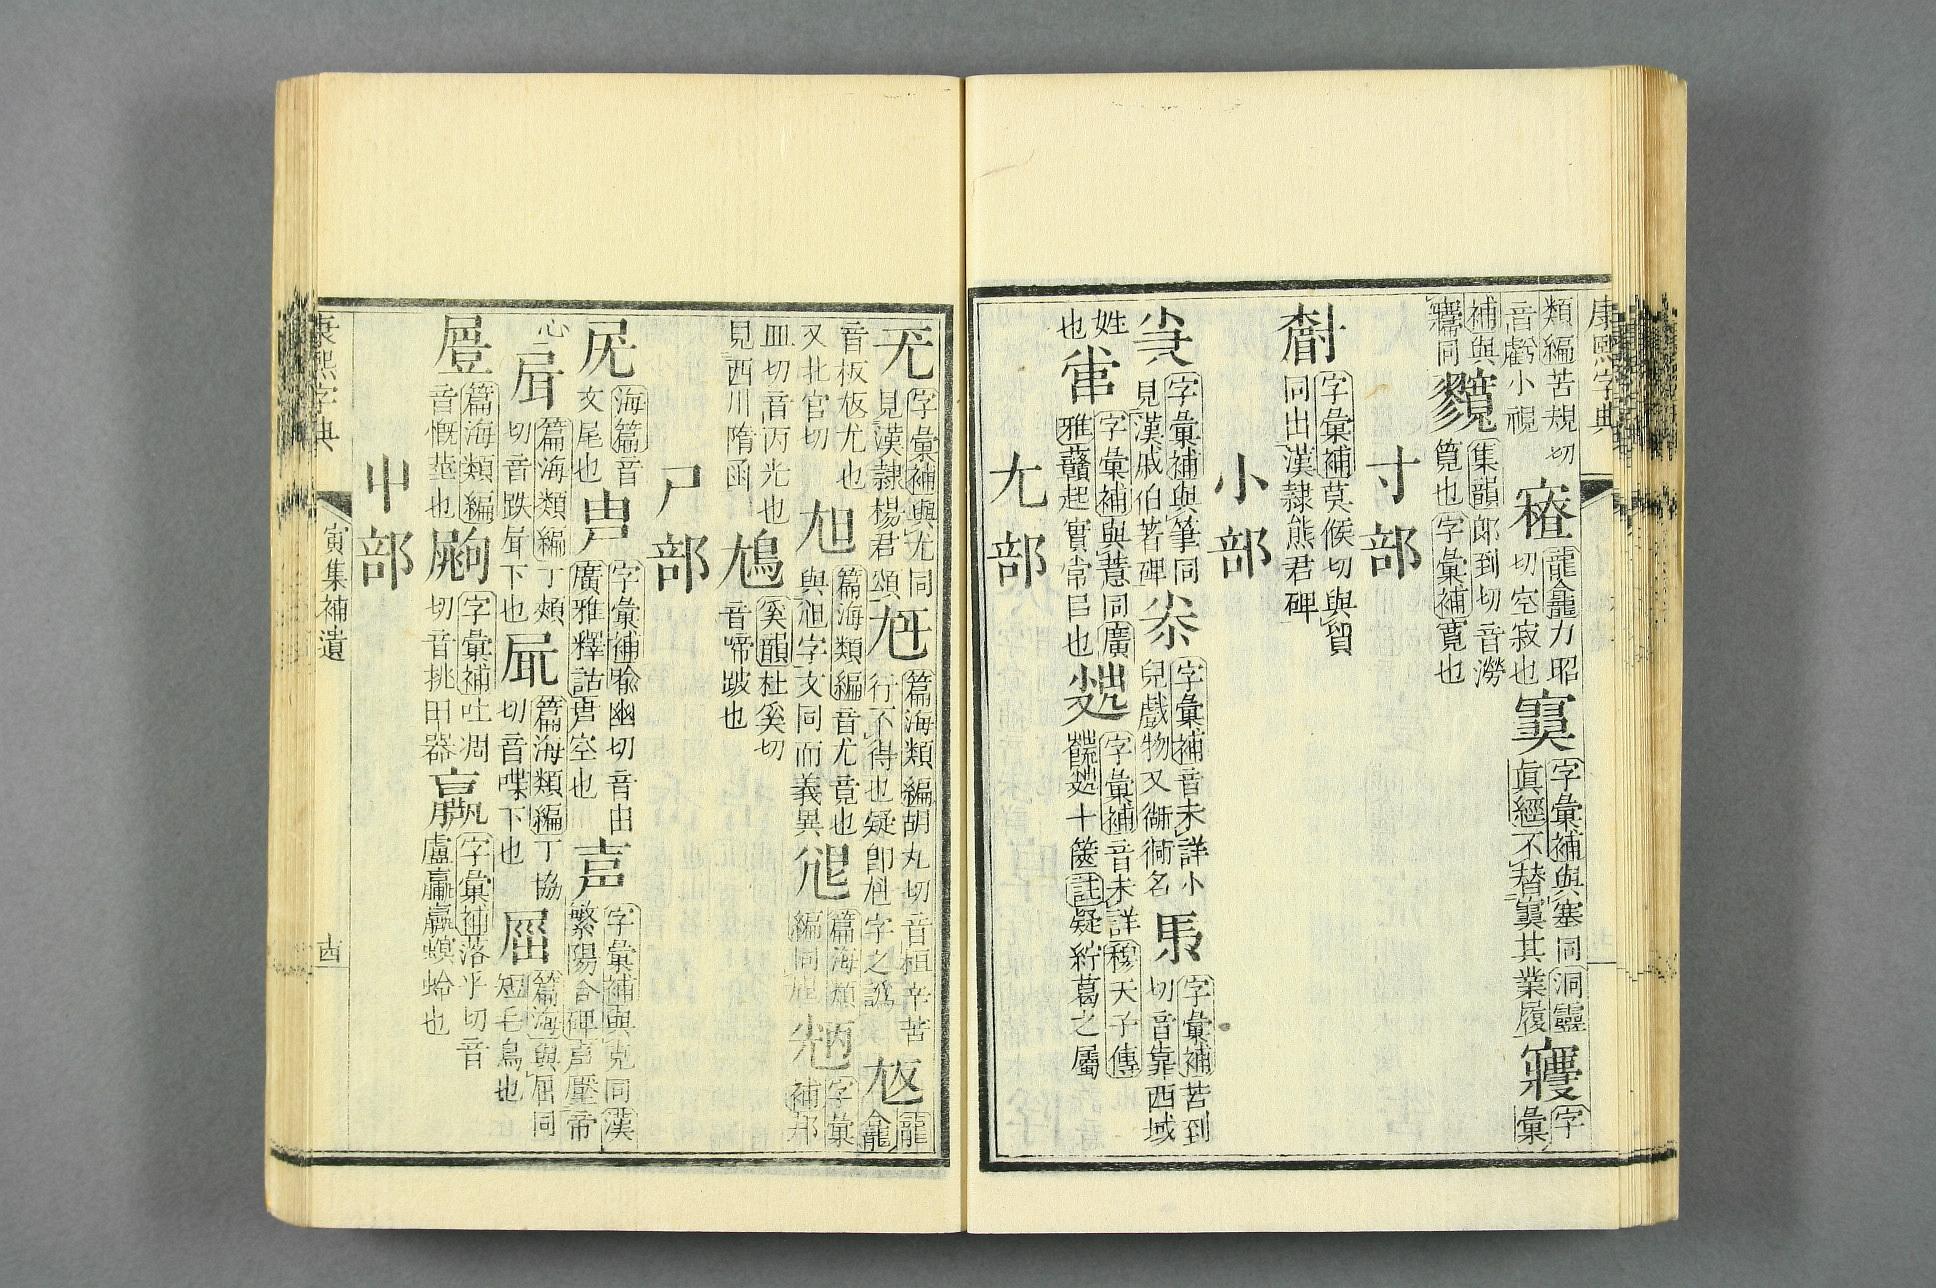 康熙字典
類編苦規切
音虧小視
龍龕力昭
切空寂也
字彙補與塞同洞靈
眞經不替其業履
字
彙
補與
同
集韻郎到切音澇
覓也字彙補覔也
寸部
字彙補莫候切與貿
同出漢隸熊君碑
小部
字彙補與筆同
見漢戚伯著碑
字彙補音未詳小
兒戲物又衚衕名
字彙補苦到
切音靠西域
姓
也
字彙補與薏同廣
雅起實常目也
字彙補音未詳穆天子傳
十篋註疑紵葛之屬
尢部
字彙補與尤同
見漢隸楊君頌
篇海類編胡丸切音桓辛苦
行不得也疑卽字之譌
龍
龕
音板尤也
又北官切
篇海類編音尤竟也
與旭字文同而義異
篇海類
編同
字彙
補邦
皿切音丙光也
見西川隋函
奚韻杜奚切
音啼跛也
尸部
海篇音
文尾也
字彙補喩幽切音由
廣雅釋詁空也
字彙補與克同漢
繁陽令碑壓帝
心
篇海類編丁頰
切音跌下也
篇海類編丁協
切音喋下也
篇海與屈同
短毛鳥也
篇海類編
音慨莖也
字彙補吐凋
切音挑田器
字彙補落乎切音
盧螟蛉也
屮部
康熙字典
寅集補遺